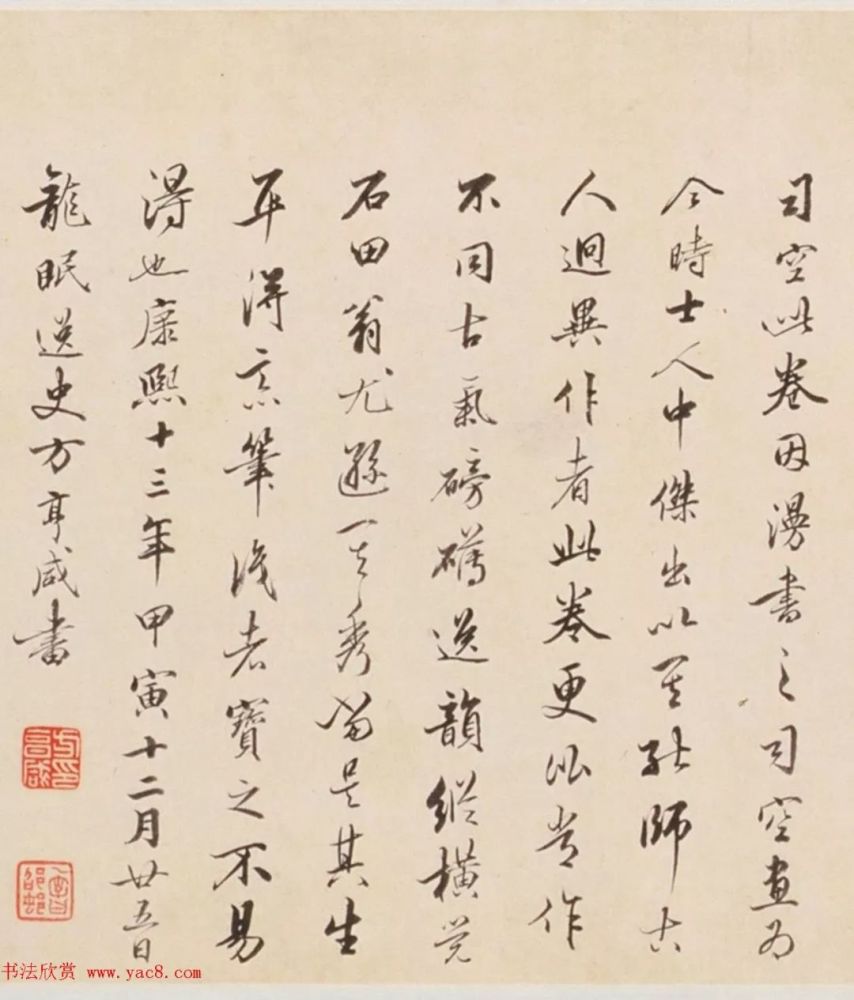 司空此卷因漫書之司空畫為
今時士人中傑出以其能師古
人迥異作者此卷更與常作
不同古氣磅礴逸韻縱橫覺
石田翁尤遜其秀當是其生
平得意筆識者寶之不易
得也康熙十三年甲寅十二月廿五日
龍眠逸史方亨咸書
书法欣赏 www.yac8.com